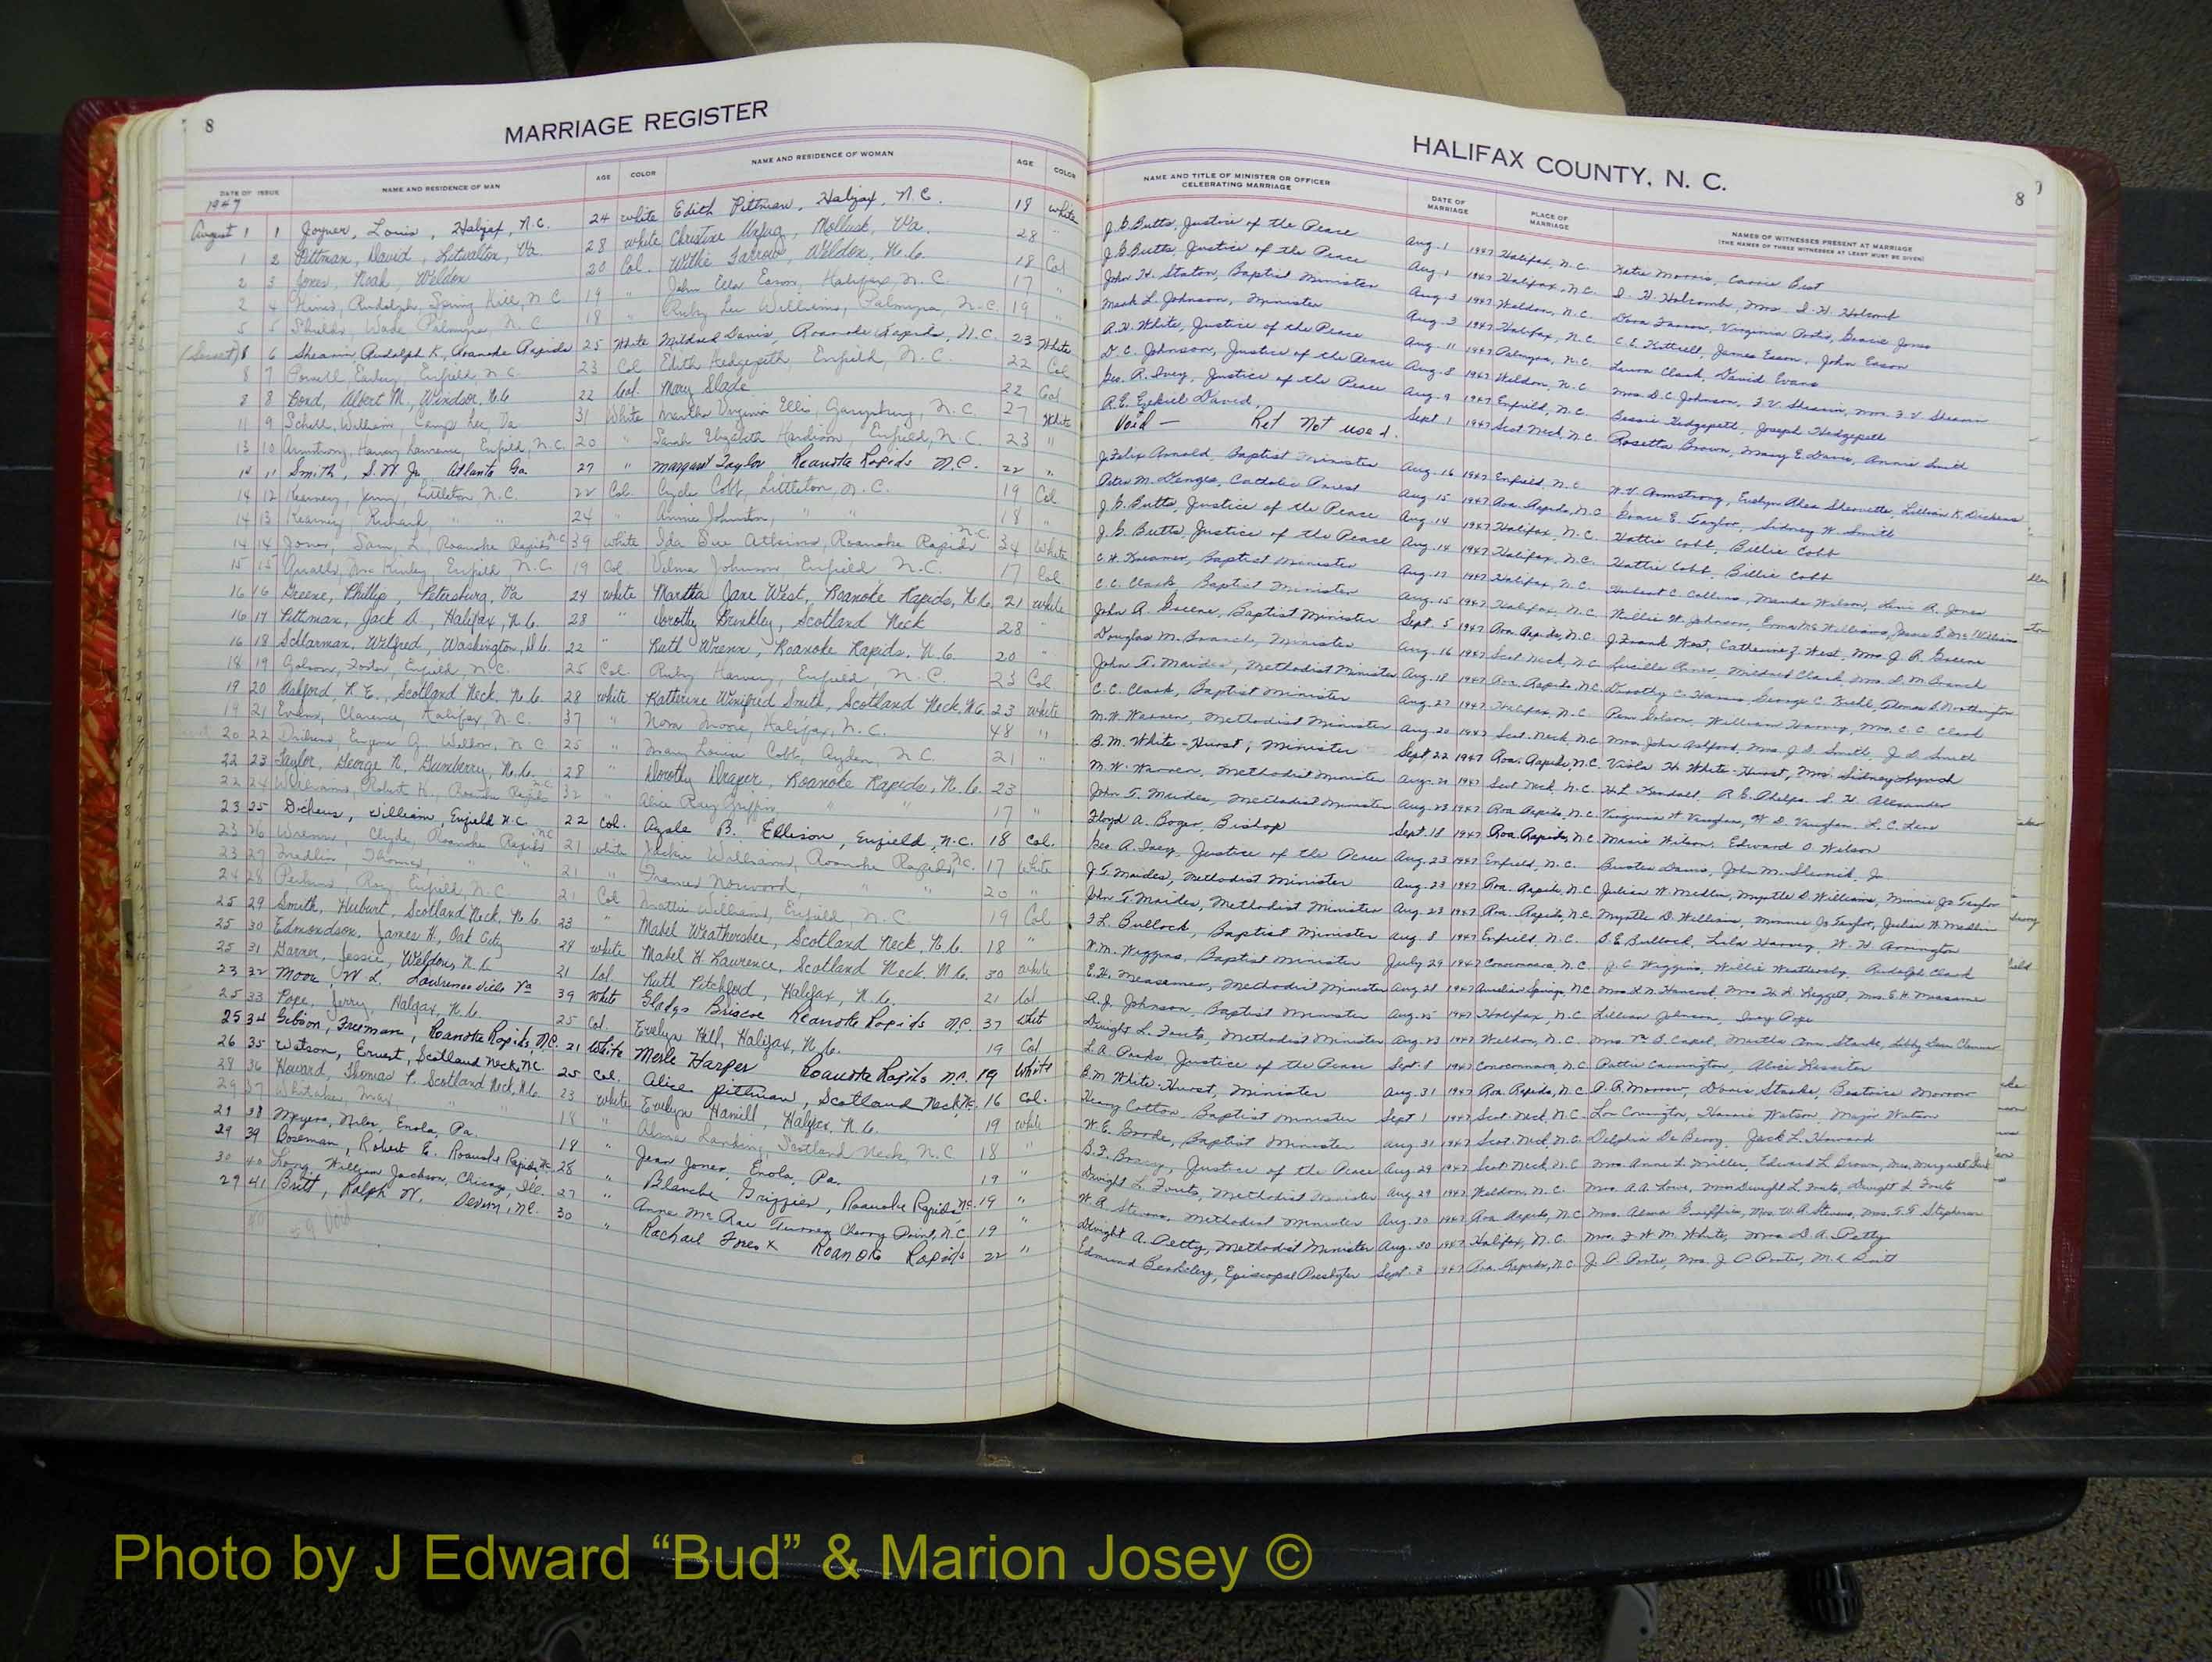 8
MARRIAGE REGISTER
DATE OF ISSUE NAME AND RESIDENCE OF MAN AGE COLOR NAME AND RESIDENCE OF WOMAN AGE COLOR
1947
August 1 1 Joyner, Louis, Halifax, N.C. 24 white Edith Pittman, Halifax, N.C. 18 white
1 2 Pittman, David, Litwalton, Va 28 white Christine Mollusk, Va. 28 "
2 3 Jones, Noah, Weldon 20 Col. Willie Farrow, Weldon, N.C. 18 Col
2 4 Hines, Rudolph, Spring Hill, N.C. 19 " John Ella Eason, Halifax N.C. 17 "
5 5 Shields, Wade Palmyra, N.C 18 " Ruby Lee Williams, Palmyra, N.C. 19 "
8 6 Shearin Rudolph K, Roanoke Rapids 25 White Mildred Davis, Roanoke Rapids, N.C. 23 White
8 7 Powell, Enfield, N.C. 23 Col Edith Hedgepeth, Enfield, N.C. 22 Col
8 8 Bond, Albert M, Windsor, N.C 22 Col. Mary Slade 22 Col
11 9 Schell, William, Camp Lee Va 31 White Martha Virginia Ellis, Garysburg, N.C. 27 White
13 10 Armstrong, Harvey Lawrence, Enfield, N.C. 20 " Sarah Elizabeth Hardison, Enfield, N.C. 23 "
14 11 Smith, S.W Jr, Atlanta Ga 27 " Margaret Taylor Roanoke Rapids N.C. 22 "
14 12 Kearney, Littleton, N.C. 22 Col. Clyde Cobb, Littleton, N.C. 19 Col
14 13 Kearney Richard, " " 24 " Annie Johnston, " " 18 "
14 14 Jones, Sam, L, Roanoke Rapids N.C 39 white Ida Sue Atkins, Roanoke Rapids N.C. 34 White
15 15 Qualls, McKinley Enfield N.C. 19 Col Velma Johnson, Enfield N.C. 17 Col
16 16 Greene, Phillip, Petersburg, Va 24 white Martha Jane West, Roanoke Rapids, N.C. 21 white
16 17 Pittman, Jack A, Halifax, N.C 28 " Dorothy Brinkley, Scotland Neck 28 "
16 18 Sollarman, Wilfred, Washington, D.C. 22 " Ruth Wrenn, Roanoke Rapids, N.C. 20 "
18 19 Enfield N.C. 25 Col. Ruby Harvey, Enfield, N.C. 23 Col
19 20 Ashford, R.E., Scotland Neck, N.C 28 white Katherine Winifred Smith, Scotland Neck, N.C. 23 white
19 21 Evans, Clarence, Halifax, N.C. 37 " Nora Moore, Halifax, N.C. 48 "
20 22 Eugene G, Weldon, N.C 25 " Mary Louise Cobb, Ayden, N.C. 21 "
22 23 Taylor, George N, Gumberry, N.C. 28 " Dorothy Draper, Roanoke Rapids, N.C. 23
22 24 Williams, Robert H., Roanoke Rapids N.C. 32 " Alice Ray Griffin, " " 17 "
23 25 Dickens, William, Enfield N.C 22 Col. B. Ellison, Enfield, N.C. 18 Col.
23 26 Wrenn, Clyde, Roanoke Rapids N.C 21 white Jackie Williams, Roanoke Rapids, N.C. 17 White
23 27 Medlin, Thomas, " " 21 " Frances Norwood, " " 20 "
24 28 Perkins, Roy, Enfield, N.C. 21 Col Mattie Williams, Enfield, N.C. 19 Col
25 29 Smith, Hubert, Scotland Neck, N.C. 23 " Mabel Weathersbee, Scotland Neck, N.C. 18 "
25 30 Edmondson, James H, Oak City 24 white Mabel H Lawrence, Scotland Neck, N.C. 30 white
25 31 Garner, Jessie, Weldon, N.C 21 Col. Ruth Pitchford, Halifax, N.C. 21 Col.
23 32 Moore, W L Lawrenceville Va 39 White Gladys Briscoe Roanoke Rapids N.C. 37 whit
25 33 Pope, Jerry, Halifax, N.C. 25 Col. Evelyn Hill, Halifax, N.C. 19 Col
25 34 Gibson, Freeman, Roanoke Rapids, N.C. 21 White Merle Harper Roanoke Rapids N.C. 19 White
26 35 Watson, Ernest, Scotland Neck, N.C 25 Col. Alice Pittman, Scotland Neck N.C. 16 Col.
28 36 Howard, Thomas P. Scotland Neck, N.C. 23 white Evelyn Hamill, Halifax, N.C. 19 white
29 37 Whitaker, Max, " " 18 " Alma Lanking, Scotland Neck, N.C 18 "
29 38 Meyers, Enola, Pa. 18 " Jean Jones, Enola, Pa. 19 "
29 39 Boseman, Robert E. Roanoke Rapids, N.C. 28 " Blanche Grizzier, Roanoke Rapids N.C. 19 "
30 40 Long, William Jackson, Chicago, Ill. 27 " Anne McRae Cherry Point, N.C. 19 "
29 41 Britt, Ralph W. N.C. 30 " Rachael Roanoke Rapids 22 "
8
HALIFAX COUNTY, N. C.
NAME AND TITLE OF MINISTER OR OFFICER CELEBRATING MARRIAGE DATE OF MARRIAGE PLACE OF MARRIAGE NAMES OF WITNESSES PRESENT AT MARRIAGE
(THE NAMES OF THREE WITNESSES AT LEAST MUST BE GIVEN)
J.G. Butts, Justice of the Peace Aug. 1 1947 Halifax, N.C. Katie Morris, Carrie Best
J.G. Butts, Justice of the Peace Aug. 1 1947 Halifax, N.C. D. H. Holcomb, Mrs D. H. Holcomb
John H. Staton, Baptist Minister Aug. 3 1947 Weldon, N.C. Dora Farrow, Virginia Gracie Jones
Mack L. Johnson, Minister Aug. 3 1947 Halifax, N.C. C.E. Kittrell, James Eason, John Eason
R.H. White, Justice of the Peace Aug. 11 1947 Palmyra, N.C. Laura Clark, David Evans
D.C. Johnson, Justice of the Peace Aug. 8 1947 Weldon, N.C. Mrs D.C. Johnson, F.V. Shearin, Mrs. F.V. Shearin
Geo. R. Ivey, Justice of the Peace Aug. 9 1947 Enfield, N.C. Bessie Hedgepeth, Joseph Hedgepeth
R.E. Ezekiel David, Sept 1 1947 Scot Neck, N.C. Rosetta Brown, Mary E. Davis, Annie Smith
Void — Ret Not used.
J. Felix Arnold, Baptist Minister Aug. 16 1947 Enfield, N.C. W.V. Armstrong, Evelyn Rhea Lillian K. Dickens
Peter M. Denges, Catholic Priest Aug. 15 1947 Roa. Rapids, N.C. Grace E. Taylor, Sidney W. Smith
J.G. Butts, Justice of the Peace Aug. 14 1947 Halifax, N.C. Hattie Cobb, Billie Cobb
J.G. Butts, Justice of the Peace Aug. 14 1947 Halifax, N.C. Hattie Cobb, Billie Cobb
Baptist Minister Aug. 17 1947 Halifax, N.C. Hubert C. Collins, Maude Wilson, R. Jones
C.C. Clark, Baptist Minister Aug. 15 1947 Halifax, N.C. Willie W. Johnson,
John R. Greene, Baptist Minister Sept. 5 1947 Roa. Rapids, N.C. J Frank West, Catherine J. West, Mrs. J. R. Greene
Douglas M. Branch, Minister Aug. 16 1947 Scot. Neck, N.C. Mildred Clark, Mrs. D.M. Branch
John T. Maides, Methodist Minister Aug. 18 1947 Roa. Rapids, N.C. Dorothy C. George C.
C.C. Clark, Baptist Minister Aug. 27 1947 Halifax, N.C William Harvey, Mrs. C.C. Clark
M.W. Warren, Methodist Minister Aug. 20 1947 Scot. Neck, N.C. Mrs. John Ashford, Mrs. J.D. Smith, J.D. Smith
B.M. White-Hurst, Minister Sept 22 1947 Roa. Rapids, N.C. Viola H. White-Hurst, Mrs Sidney Lynch
M.W. Warren, Methodist Minister Aug. 20 1947 Scot. Neck, N.C. H.L. Kendall, R.E. Phelps, S.H. Alexander
John T. Maides, Methodist Minister Aug. 23 1947 Roa Rapids, N.C. Virginia H Vaughan, W.D. Vaughan,
Floyd A. Boger, Bishop Sept. 18 1947 Roa. Rapids, N.C. Marie Wilson, Edward O. Wilson
Geo. R. Ivey, Justice of the Peace Aug. 23 1947 Enfield, N.C. Buster Davis,
J.T. Maides, Methodist Minister Aug. 23 1947 Roa. Rapids, N.C. Julian W. Medlin, Myrtle D. Williams, Minnie Jo Taylor
John T. Maides, Methodist Minister Aug. 23 1947 Roa. Rapids, N.C. Myrtle D. Williams, Minnie Jo Taylor, Julian W. Medlin
F.L. Bullock, Baptist Minister Aug. 8 1947 Enfield, N.C. B.E. Bullock, Lula Harvey, W.H. Arrington
W.M. Wiggins, Baptist Minister July 29 1947 Conoconnara, N.C. J.C. Wiggins, Willie Weathersby, Rudolph Clark
E.H. Measamer, Methodist Minister Aug. 28 1947 Aurelian Springs, N.C. Mrs L.N. Hancock, Mrs H.L. Leggett, Mrs. E.H. Measamer
A.J. Johnson, Baptist Minister Aug. 25 1947 Halifax, N.C. Lillian Johnson, Ivey Pope
Dwight L. Fouts, Methodist Minister Aug 23 1947 Weldon, N.C. Martha Ann
L.A. Parks, Justice of the Peace Sept. 8 1947 Conoconnara, N.C. Pattie Carrington, Alice Lassiter
B.M. White-Hurst, Minister Aug. 31 1947 Roa. Rapids, N.C. A.R. Morrow, Doris Starke, Beatrice Morrow
Henry Cotton Baptist Minister Sept 1 1947 Scot. Neck, N.C. Lou Covington, Watson, Major Watson
W.E. Goode, Baptist Minister Aug. 31 1947 Scot. Neck, N.C. Delphia De Berry, Jack L. Howard
B.F. Justice of the Peace Aug. 29 1947 Scot. Neck, N.C. Mrs. Anne L. Miller, Edward L. Brown,
Dwight L. Fouts, Methodist Minister Aug 29 1947 Weldon, N.C. Mrs. A.A. Lowe, Mrs Dwight L. Fouts, Dwight L Fouts
W.A. Stevens, Methodist Minister Aug. 30 1947 Roa Rapids, N.C. Mrs. Alma Griffin, Mrs. W.A. Stevens, Mrs. Stephenson
Dwight A. Petty, Methodist Minister Aug. 30 1947 Halifax, N.C. Mrs. F.W.M. White, Mrs D.A. Petty
Edmund Berkeley, Episcopal Presbyter Sept. 3 1947 Roa. Rapids, N.C. J.P. Porter, Mrs. J.P. Porter, M.L. Britt
Photo by J Edward “Bud” & Marion Josey ©